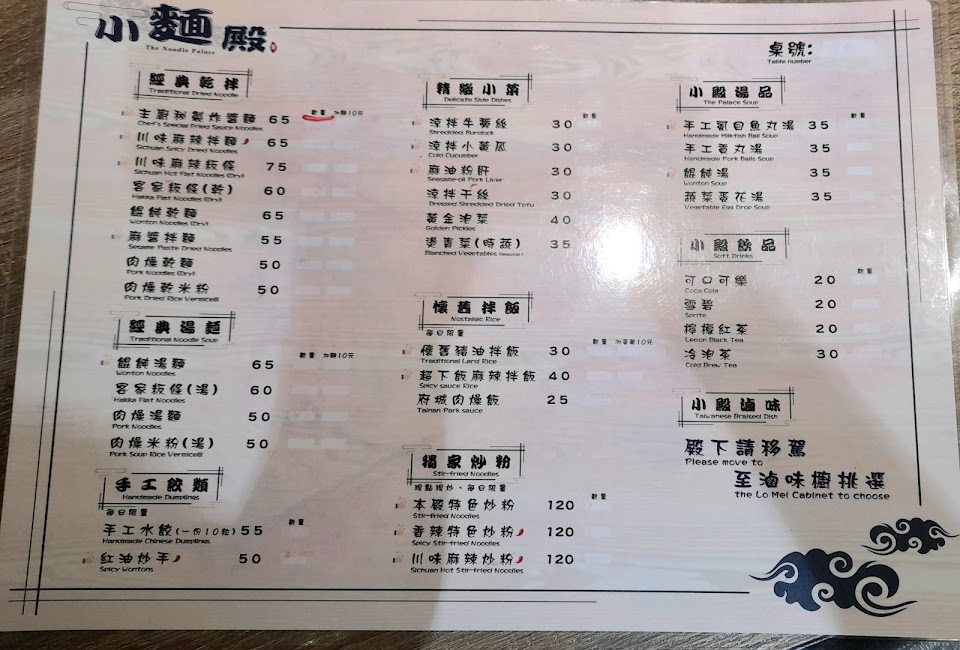 小麵殿
The Noodle Palace
桌號:
Table number
經典乾拌
Traditional Dried Noodle
數量 加麵10元
主廚祕製炸醬麵 65
Chef's Special Fried Sauce Noodles
川味麻辣拌麵 65
Sichuan Spicy Dried Noodles
川味麻辣板條 75
Sichuan Hot Flat Noodles (Dry)
客家板條(乾) 60
Hakka Flat Noodles (Dry)
餛飩乾麵 65
Wonton Noodles (Dry)
麻醬拌麵 55
Sesame Paste Dried Noodles
肉燥乾麵 50
Pork Noodles (Dry)
肉燥乾米粉 50
Pork Dried Rice Vermicelli
經典湯麵
Traditional Noodle Soup
數量 加麵10元
餛飩湯麵 65
Wonton Noodles
客家板條(湯) 60
Hakka Flat Noodles
肉燥湯麵 50
Pork Noodles
肉燥米粉(湯) 50
Pork Soup Rice Vermicelli
手工餃類
Handmade Dumplings
每日限量
數量
手工水餃(一份10粒) 55
Handmade Chinese Dumplings
紅油炒手 50
Spicy Wontons
精緻小菜
Delicate Side Dishes
數量
涼拌牛蒡絲 30
Shredded Burdock
涼拌小黃瓜 30
Cold Cucumber
麻油粉肝 30
Seasame-oil Pork Liver
涼拌干絲 30
Dressed Shredded Dried Tofu
黃金泡菜 40
Golden Pickles
燙青菜(時蔬) 35
Blanched Vegetables (Seasonal)
懷舊拌飯
Nostalgic Rice
每日限量
懷舊豬油拌飯 30
Traditional Lard Rice
超下飯麻辣拌飯 40
Spicy sauce Rice
府城肉燥飯 25
Tainan Park sauce
獨家炒粉
Stir-fried Noodles
現點現炒、每日限量
數量
本殿特色炒粉 120
Stir-fried Noodles
香辣特色炒粉 120
Spicy Stir-fried Noodles
川味麻辣炒粉 120
Sichuan Hot Stir-fried Noodles
小殿湯品
The Palace Soup
數量
手工虱目魚丸湯 35
Handmade Milkfish Ball Soup
手工貢丸湯 35
Handmade Pork Balls Soup
餛飩湯 35
Wonton Soup
蔬菜蛋花湯 35
Vegetable Egg Drop Soup
小殿飲品
Soft Drinks
數量
可口可樂 20
Coca Cola
雪碧 20
Sprite
檸檬紅茶 20
Lemon Black Tea
冷泡茶 30
Cold Brew Tea
小殿滷味
Taiwanese Braised Dish
殿下請移駕
Please move to
至滷味櫥挑選
the Lo Mei Cabinet to choose